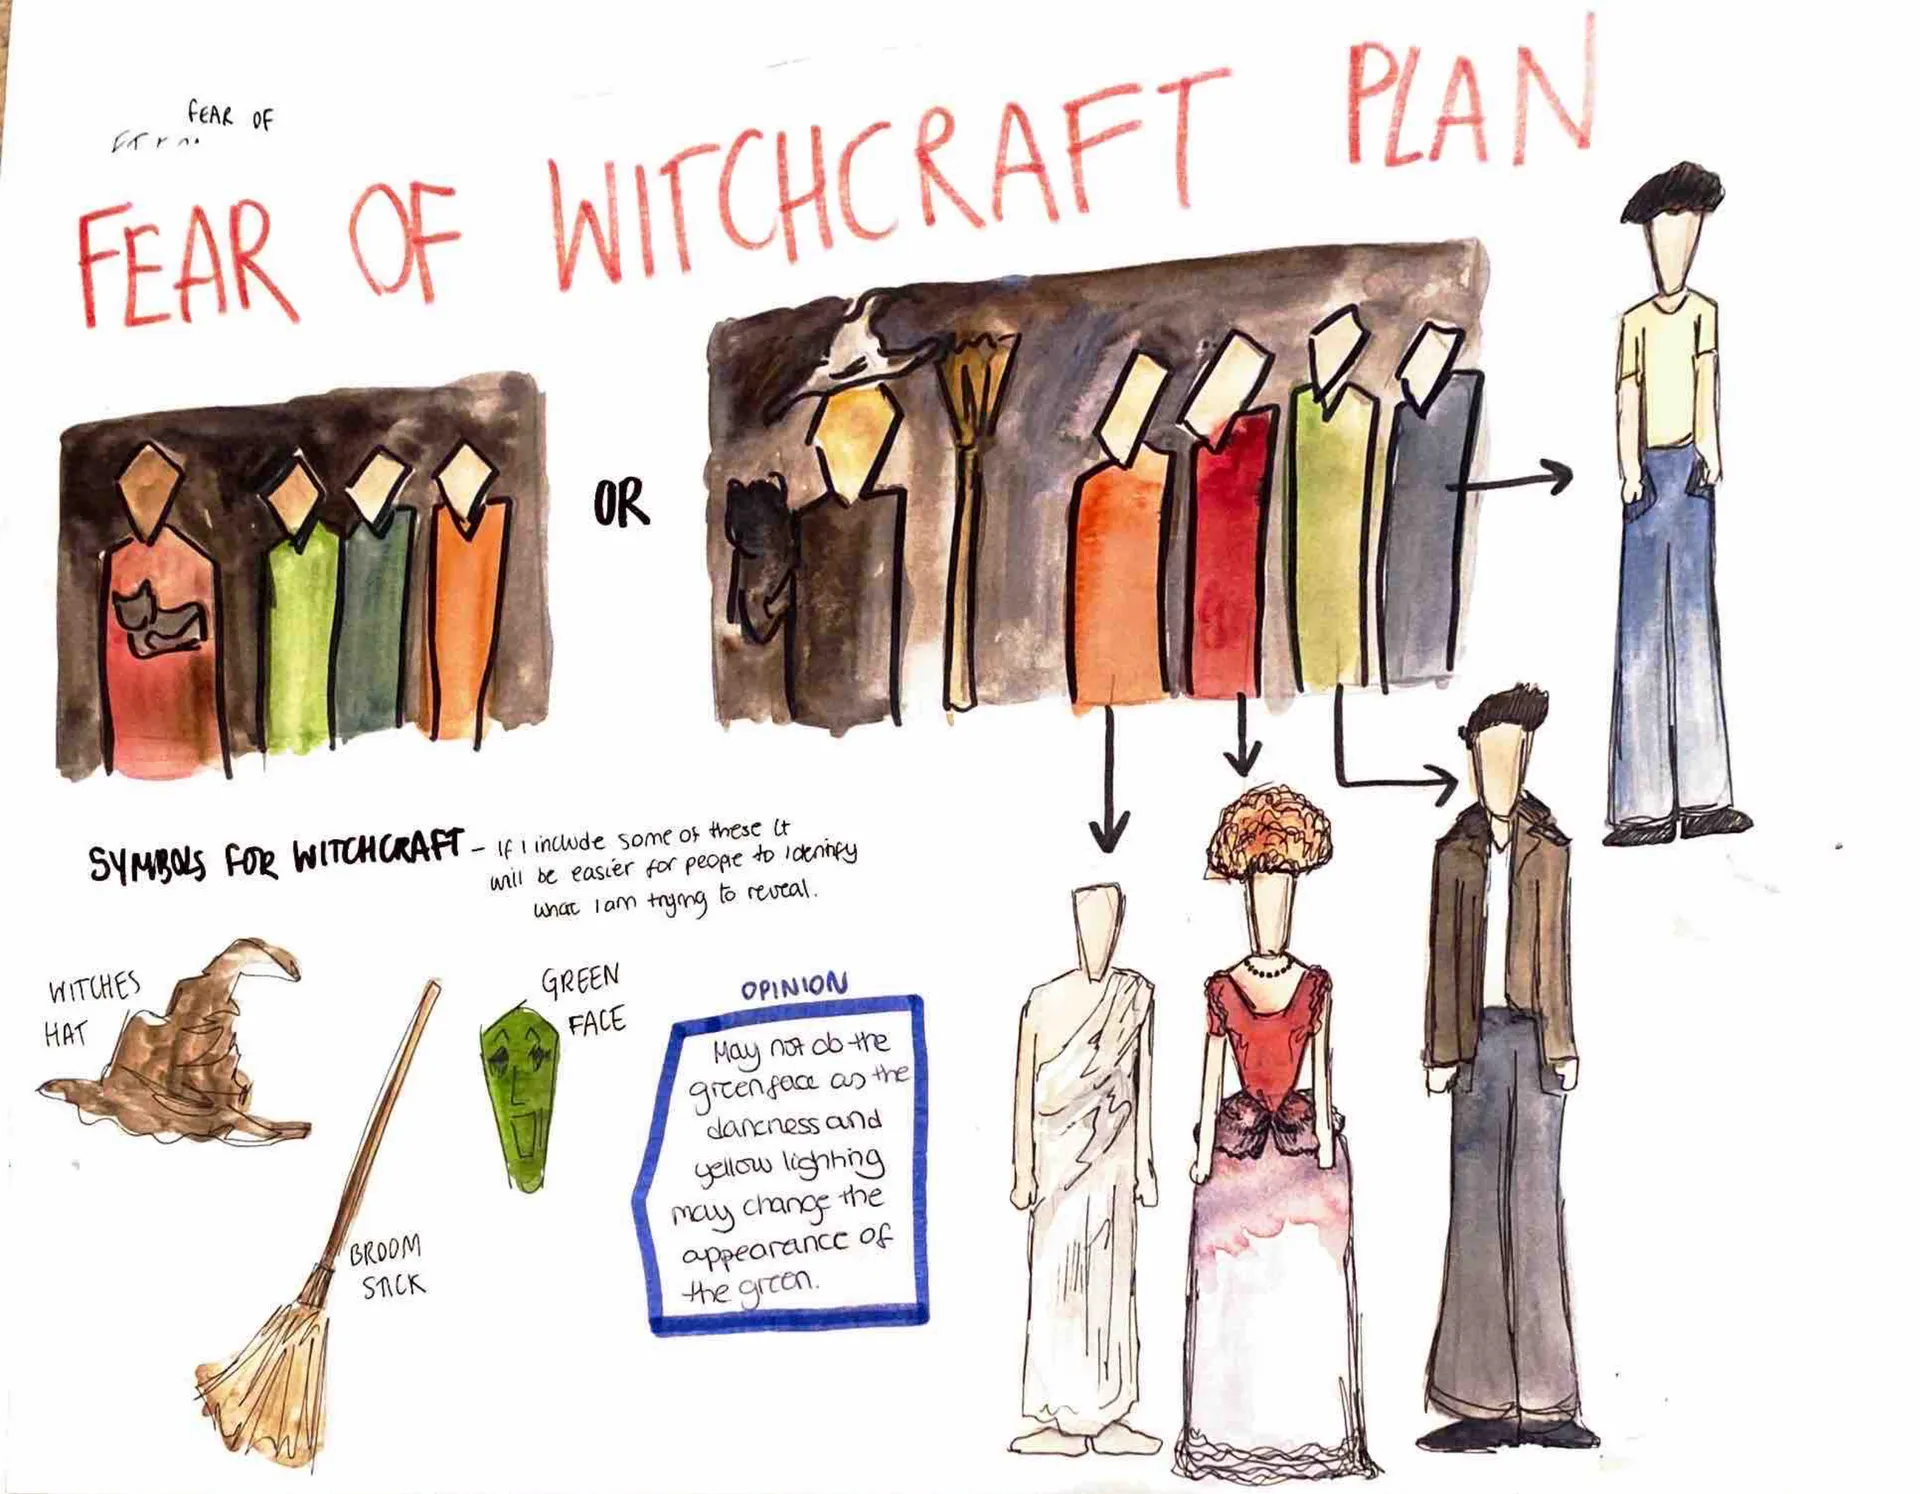 FEAR OF
FEAR OF WITCHCRAFT PLAN
OR
SYMBOLS FOR WITCHCRAFT - If I include some of these it
will be easier for people to identify
what I am trying to reveal.
WITCHES
HAT
GREEN
FACE
BROOM
STICK
OPINION
May not do the
green face as the
darkness and
yellow lighting
may change the
appearance of
the green.